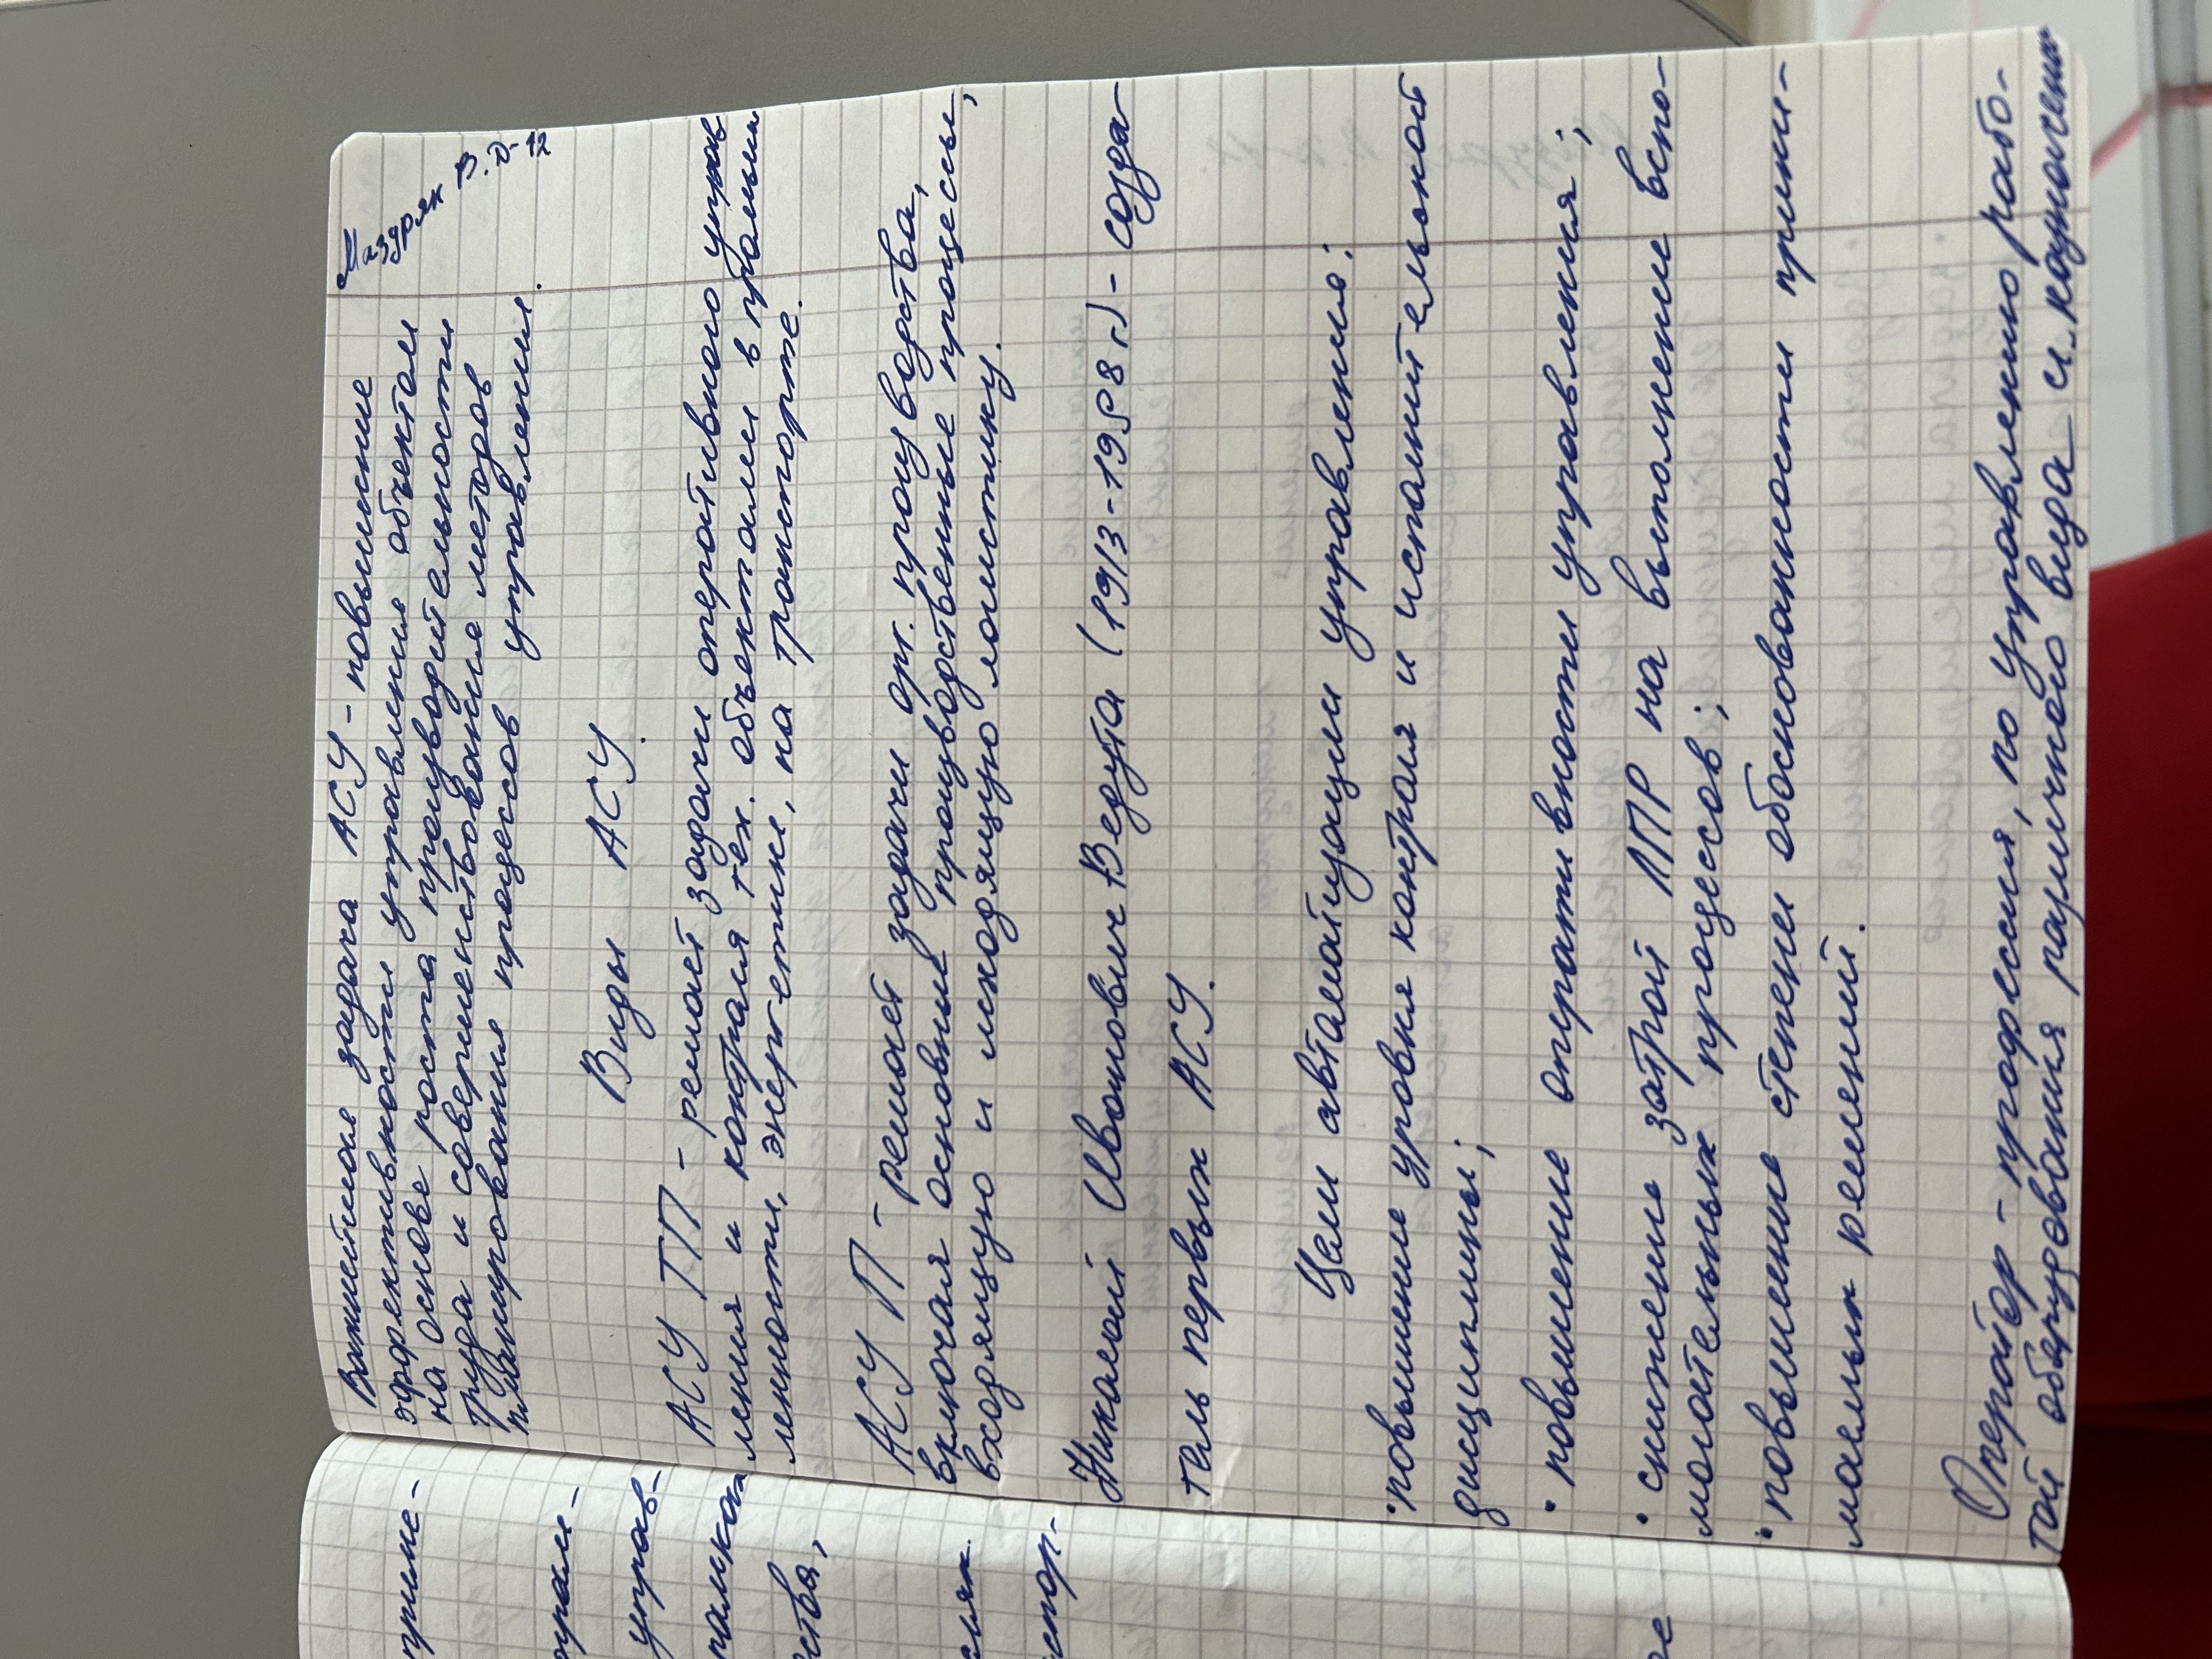 Маздрян В. Д-12
Важнейшая задача АСУ - повышение
эффективности управления объектом
на основе роста производительности
труда и совершенствования методов
планирования процессов управления.
Виды АСУ.
АСУ ТП - решает задачи оперативного управ
ления и контроля тех. объектами в промыш
ленности, энергетике, на транспорте.
АСУ П - решает задачи орг. производства,
включая основные производственные процессы,
входящую и исходящую логистику.
Николай Иванович Ведута (1913-1998 г.) - созда-
тель первых АСУ.
Цели автоматизации управления:
• повышение уровня контроля и исполнительской
дисциплины;
• повышение оперативности управления;
• снижение затрат ЛПР на выполнение вспо-
могательных процессов;
• повышение степени обоснованности прини-
маемых решений.
Оператор - профессия, по управлению рабо-
той оборудования различного вида и назначения
приме-
управ-
ства,